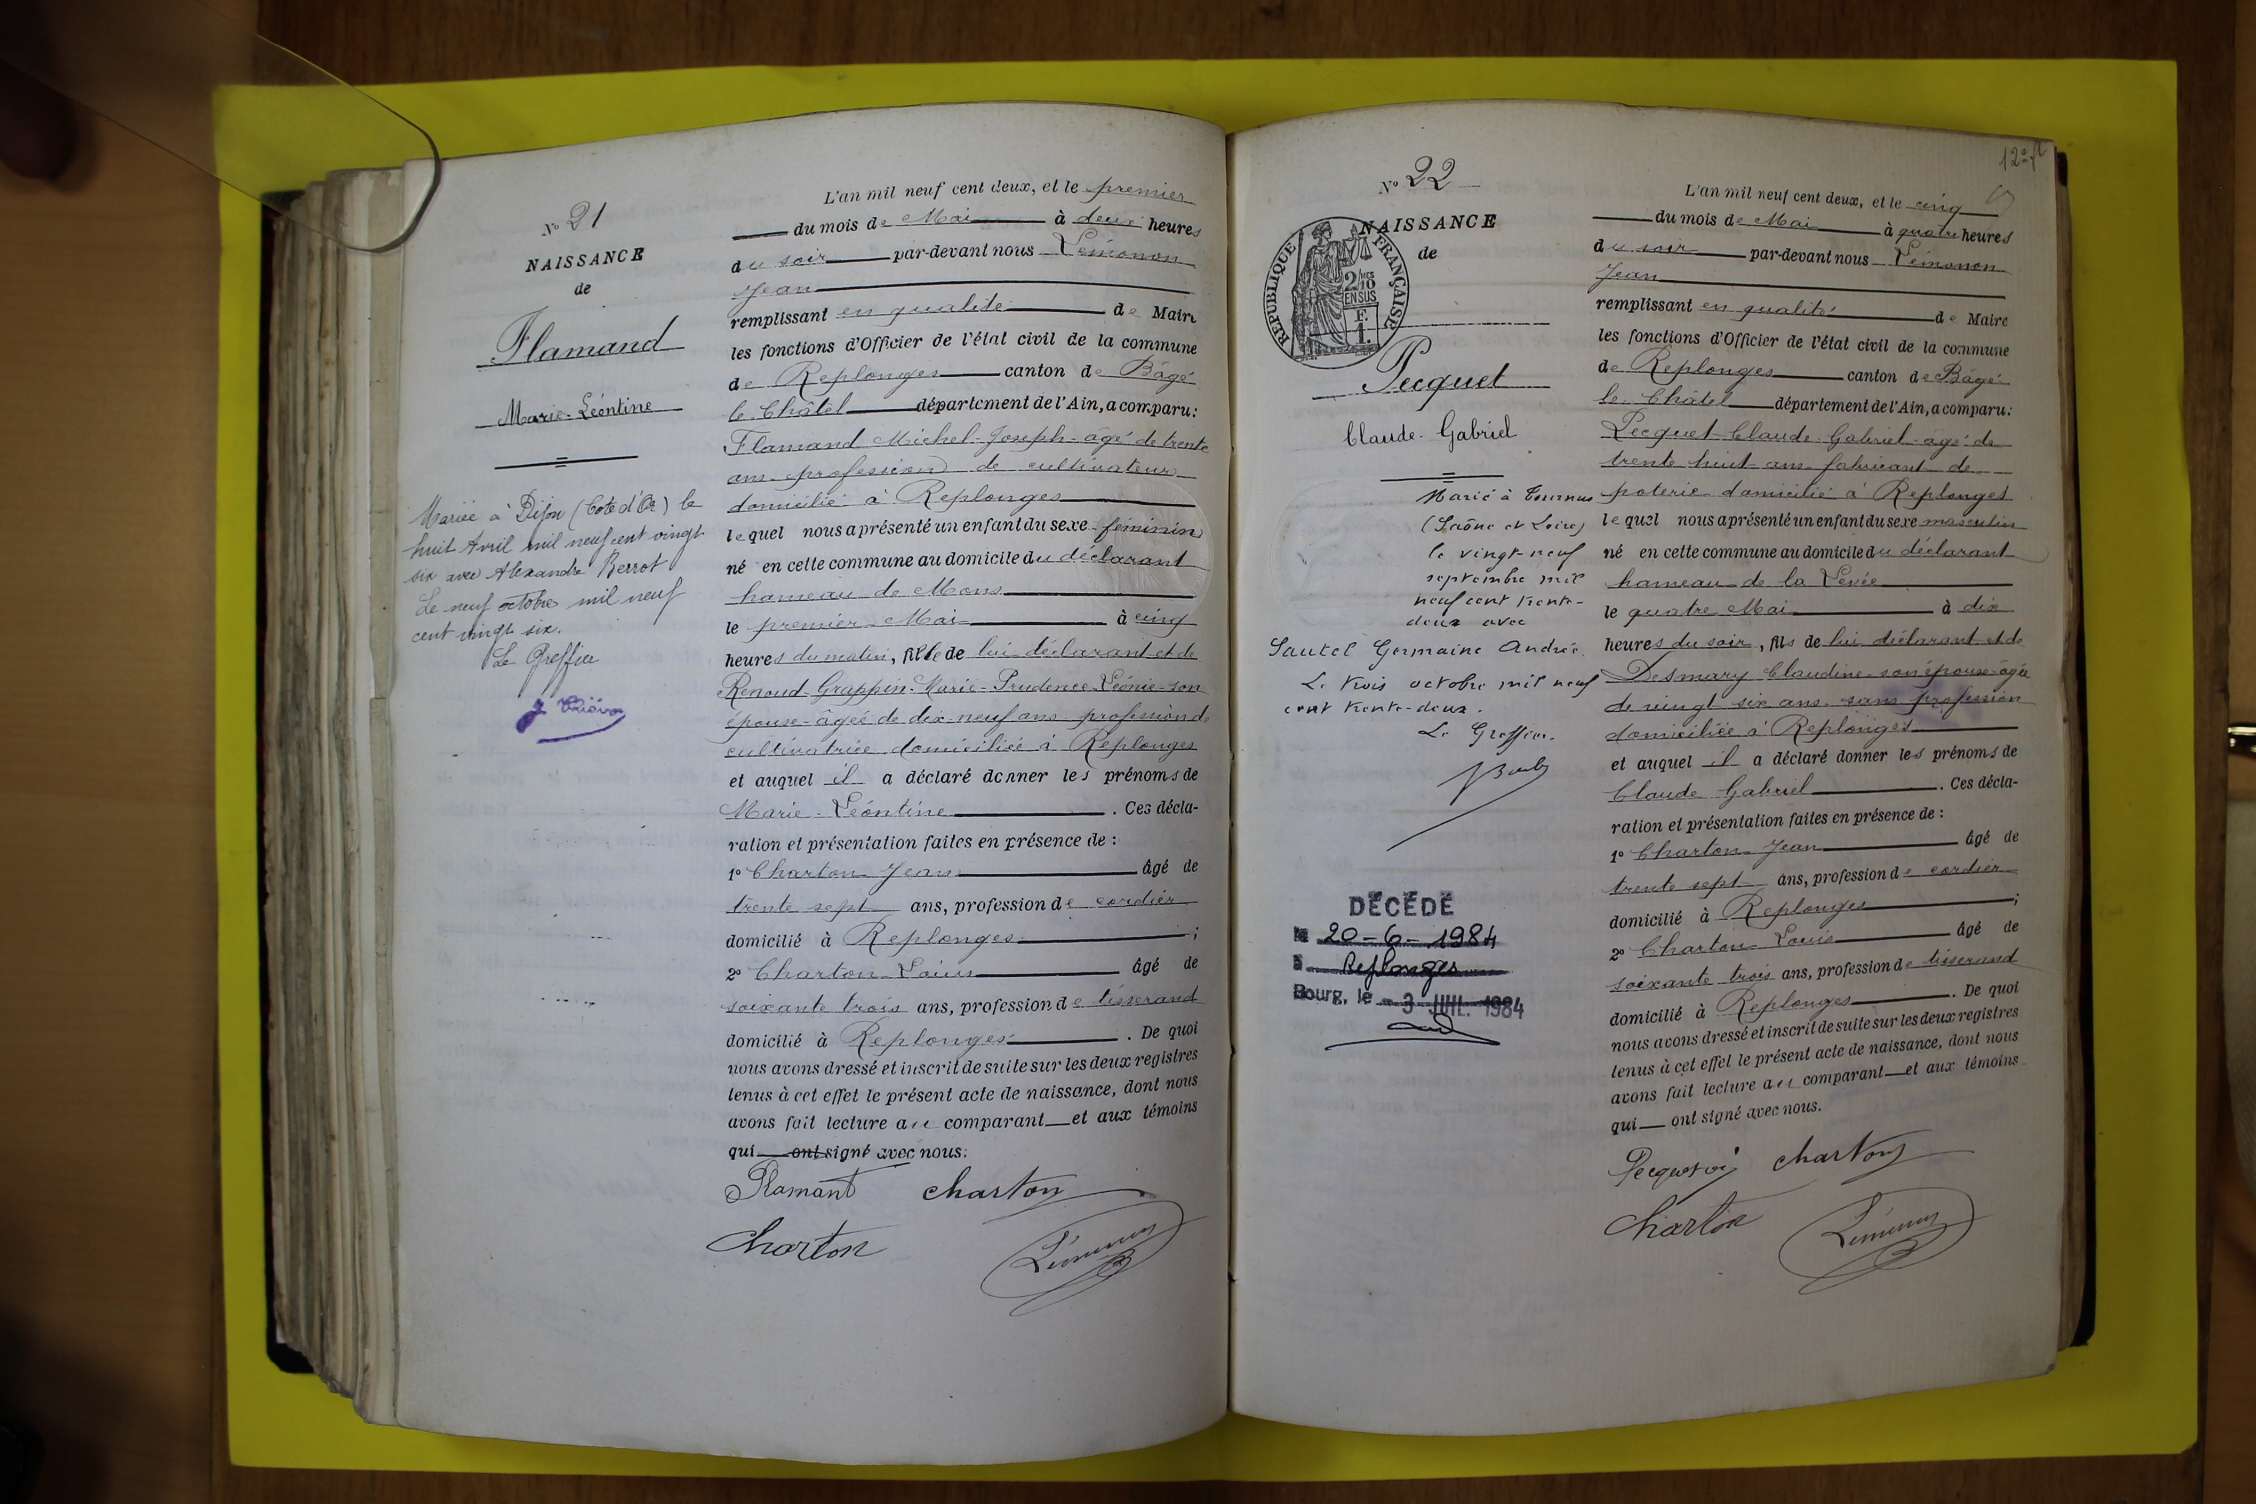 N° 21
NAISSANCE
de
Flamand
Marie-Léontine
Mariée à Dijon (Côte d'Or) le
huit Avril mil neuf cent vingt
six avec Alexandre Berrot
Le neuf octobre mil neuf
cent vingt six.
Le Greffier
L'an mil neuf cent deux, et le premier
du mois de Mai à deux heures
du soir par-devant nous Lémonon
Jean
remplissant en qualité de Maire
les fonctions d'Officier de l'état civil de la commune
de Replonges canton de Bâgé
le Châtel département de l'Ain, a comparu:
Flamand Michel-Joseph-âgé de trente
ans profession de cultivateur
domicilié à Replonges
lequel nous a présenté un enfant du sexe féminin
né en cette commune au domicile du déclarant
hameau de Mons
le premier Mai à cinq
heures du matin, fille de lui déclarant et de
Renoud-Grappin-Marie-Prudence-Léonie-son
épouse-âgée de dix-neuf ans profession de
cultivatrice domiciliée à Replonges
et auquel il a déclaré donner les prénoms de
Marie-Léontine. Ces décla-
ration et présentation faites en présence de :
1° Charton Jean âgé de
trente sept ans, profession de cordier
domicilié à Replonges ;
2° Charton Louis âgé de
soixante trois ans, profession de tisserand
domicilié à Replonges. De quoi
nous avons dressé et inscrit de suite sur les deux registres
tenus à cet effet le présent acte de naissance, dont nous
avons fait lecture au comparant et aux témoins
qui ont signé avec nous.
Flamant Charton
Charton Lémonon
12e ft
N° 22
NAISSANCE
de
RÉPUBLIQUE FRANÇAISE
2/10 MES
EN SUS
F.
1.
Pecquet
Claude-Gabriel
Marié à Tournus
(Saône et Loire)
le vingt-neuf
septembre mil
neuf cent trente-
deux avec
Sautel Germaine Andrée.
Le trois octobre mil neuf
cent trente-deux.
Le Greffier.
DÉCÉDÉ
le 20-6-1984
à Replonges
Bourg, le -3 JUIL. 1984
L'an mil neuf cent deux, et le cinq
du mois de Mai à quatre heures
du soir par-devant nous Lémonon
Jean
remplissant en qualité de Maire
les fonctions d'Officier de l'état civil de la commune
de Replonges canton de Bâgé
le Châtel département de l'Ain, a comparu:
Pecquet Claude-Gabriel âgé de
trente huit ans fabricant de
poterie domicilié à Replonges
lequel nous a présenté un enfant du sexe masculin
né en cette commune au domicile du déclarant
hameau de la Levée
le quatre Mai à dix
heures du soir, fils de lui déclarant et de
Desmary Claudine son épouse âgée
de vingt six ans sans profession
domiciliée à Replonges
et auquel il a déclaré donner les prénoms de
Claude Gabriel. Ces décla-
ration et présentation faites en présence de :
1° Charton Jean âgé de
trente sept ans, profession de cordier
domicilié à Replonges ;
2° Charton Louis âgé de
soixante trois ans, profession de tisserand
domicilié à Replonges. De quoi
nous avons dressé et inscrit de suite sur les deux registres
tenus à cet effet le présent acte de naissance, dont nous
avons fait lecture au comparant et aux témoins
qui ont signé avec nous.
Charton
Charton Lémonon